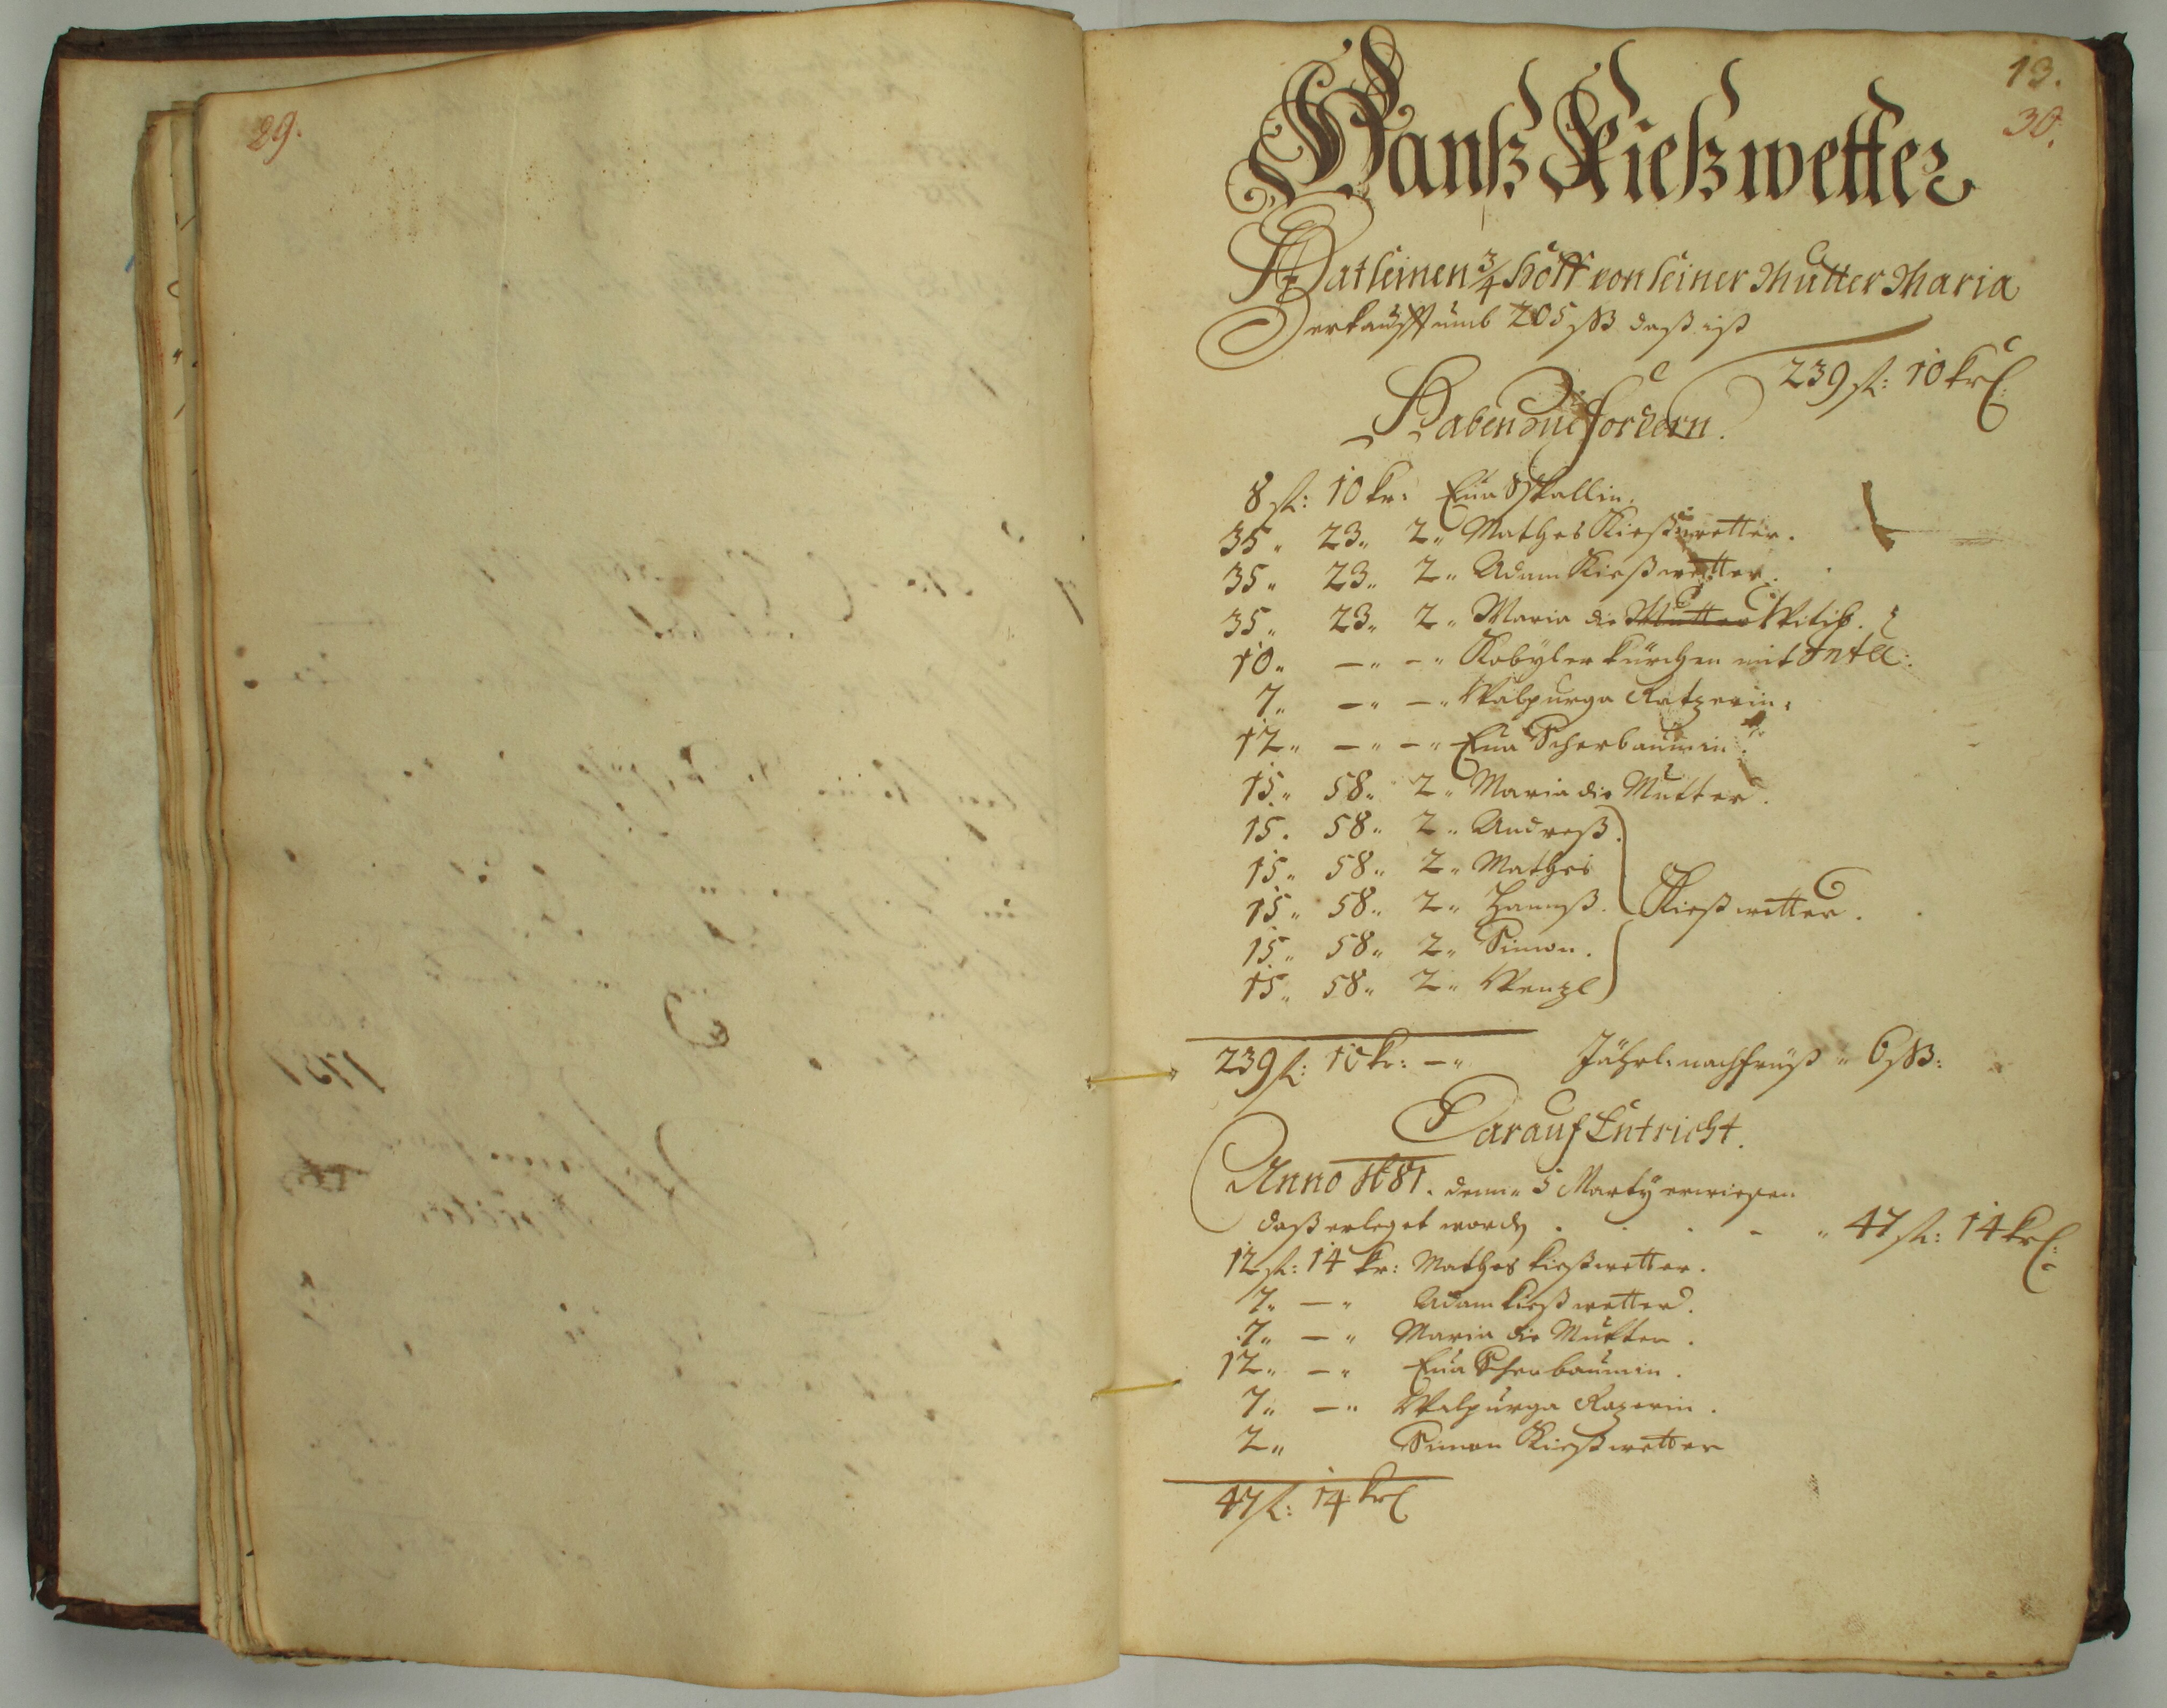 29.
13.
30.
Hanß Kießwetter
Hat seinen 3/4 Hoff von seiner Mutter Maria
erkaufft umb 205 ßß daß ist
239 fl: 10 kr:
Haben zue fordern.
8 fl: 10 kr: Eua
35 " 23 " 2 " Mathes Kießwetter.
35 " 23 " 2 " Adam Kießwetter.
35 " 23 " 2 " Maria die Mutter Witib.
10 " — " — " Kobÿler Kürchen mit Intee:
7 " — " — " Walpurga Ratzerin.
12 " — " — " Eua Scherbaumin.
15 " 58 " 2 " Maria die Mutter.
15. 58 " 2 " Andreß.
15 " 58 " 2 " Mathes
15 " 58 " 2 " Hannß. Kießwetter.
15 " 58 " 2 " Simon.
15 " 58 " 2 " Wenzl
239 fl: 10 kr: — " Jährl: nachfrüst " 6 ßß:
Darauf Entricht.
Anno 1681. denn 5 Martÿ erwiesen
daß erleget word . . . - " 47 fl: 14 kr:
12 fl: 14 kr: Mathes Kießwetter.
7 " — " Adam Kießwetter.
7 " — " Maria die Mutter.
12 " — " Eua Scherbaumin.
7 " — " Walpurga Razerin.
2 " Simon Kießwetter
47 fl: 14 kr